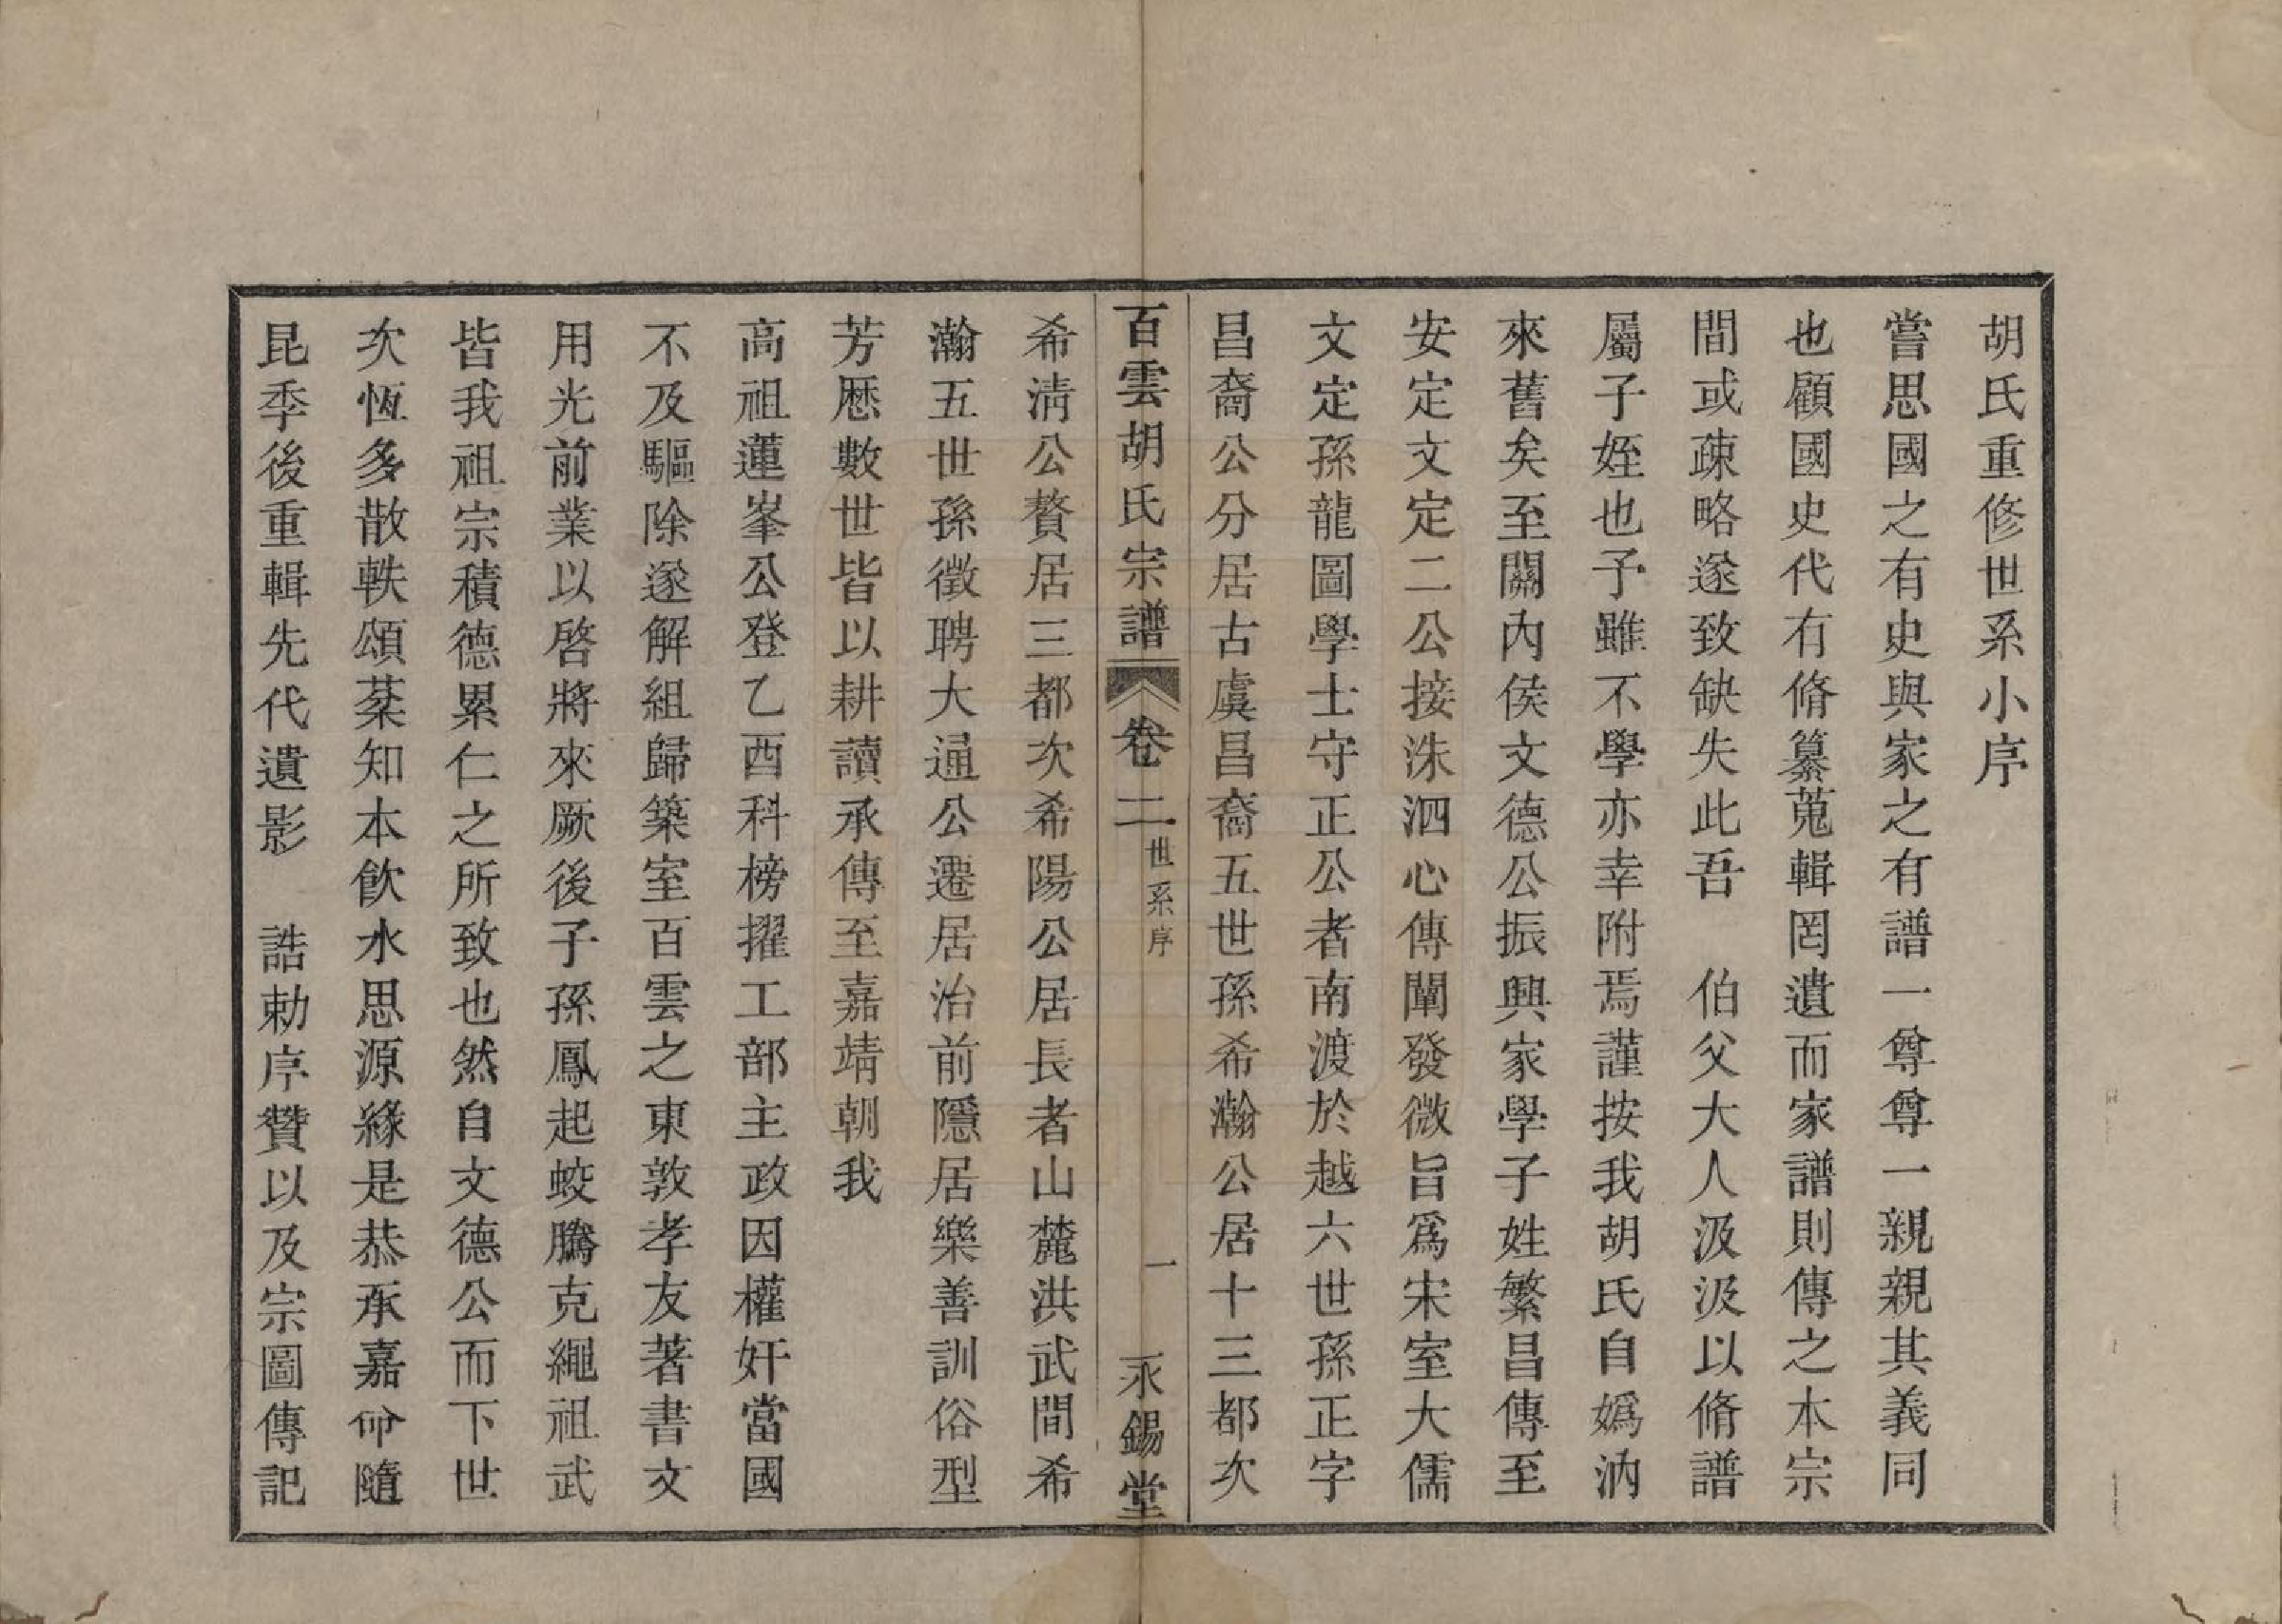 胡氏重修世系小序
嘗思國之有史與家之有譜一尊尊一親親其義同
也顧國史代有脩纂蒐輯罔遺而家譜則傳之本宗
間或疎略遂致缺失此吾　伯父大人汲汲以脩譜
屬子姪也予雖不學亦幸附焉謹按我胡氏自媯汭
來舊矣至關內侯文德公振興家學子姓繁昌傳至
安定文定二公接洙泗心傳闡發微旨爲宋室大儒
文定孫龍圖學士守正公者南渡於越六世孫正字
昌裔公分居古虞昌裔五世孫希瀚公居十三都次
百雲胡氏宗譜　卷二　世系序　一　永錫堂
希淸公贅居三都次希陽公居長者山麓洪武間希
瀚五世孫徵聘大通公遷居治前隱居樂善訓俗型
芳厯數世皆以耕讀承傳至嘉靖朝我
高祖蓮峯公登乙酉科榜擢工部主政因權奸當國
不及驅除遂解組歸築室百雲之東敦孝友著書文
用光前業以啓將來厥後子孫鳳起蛟騰克繩祖武
皆我祖宗積德累仁之所致也然自文德公而下世
次恆多散軼頌棻知本飮水思源緣是恭承嘉命隨
昆季後重輯先代遺影　誥勅序贊以及宗圖傳記